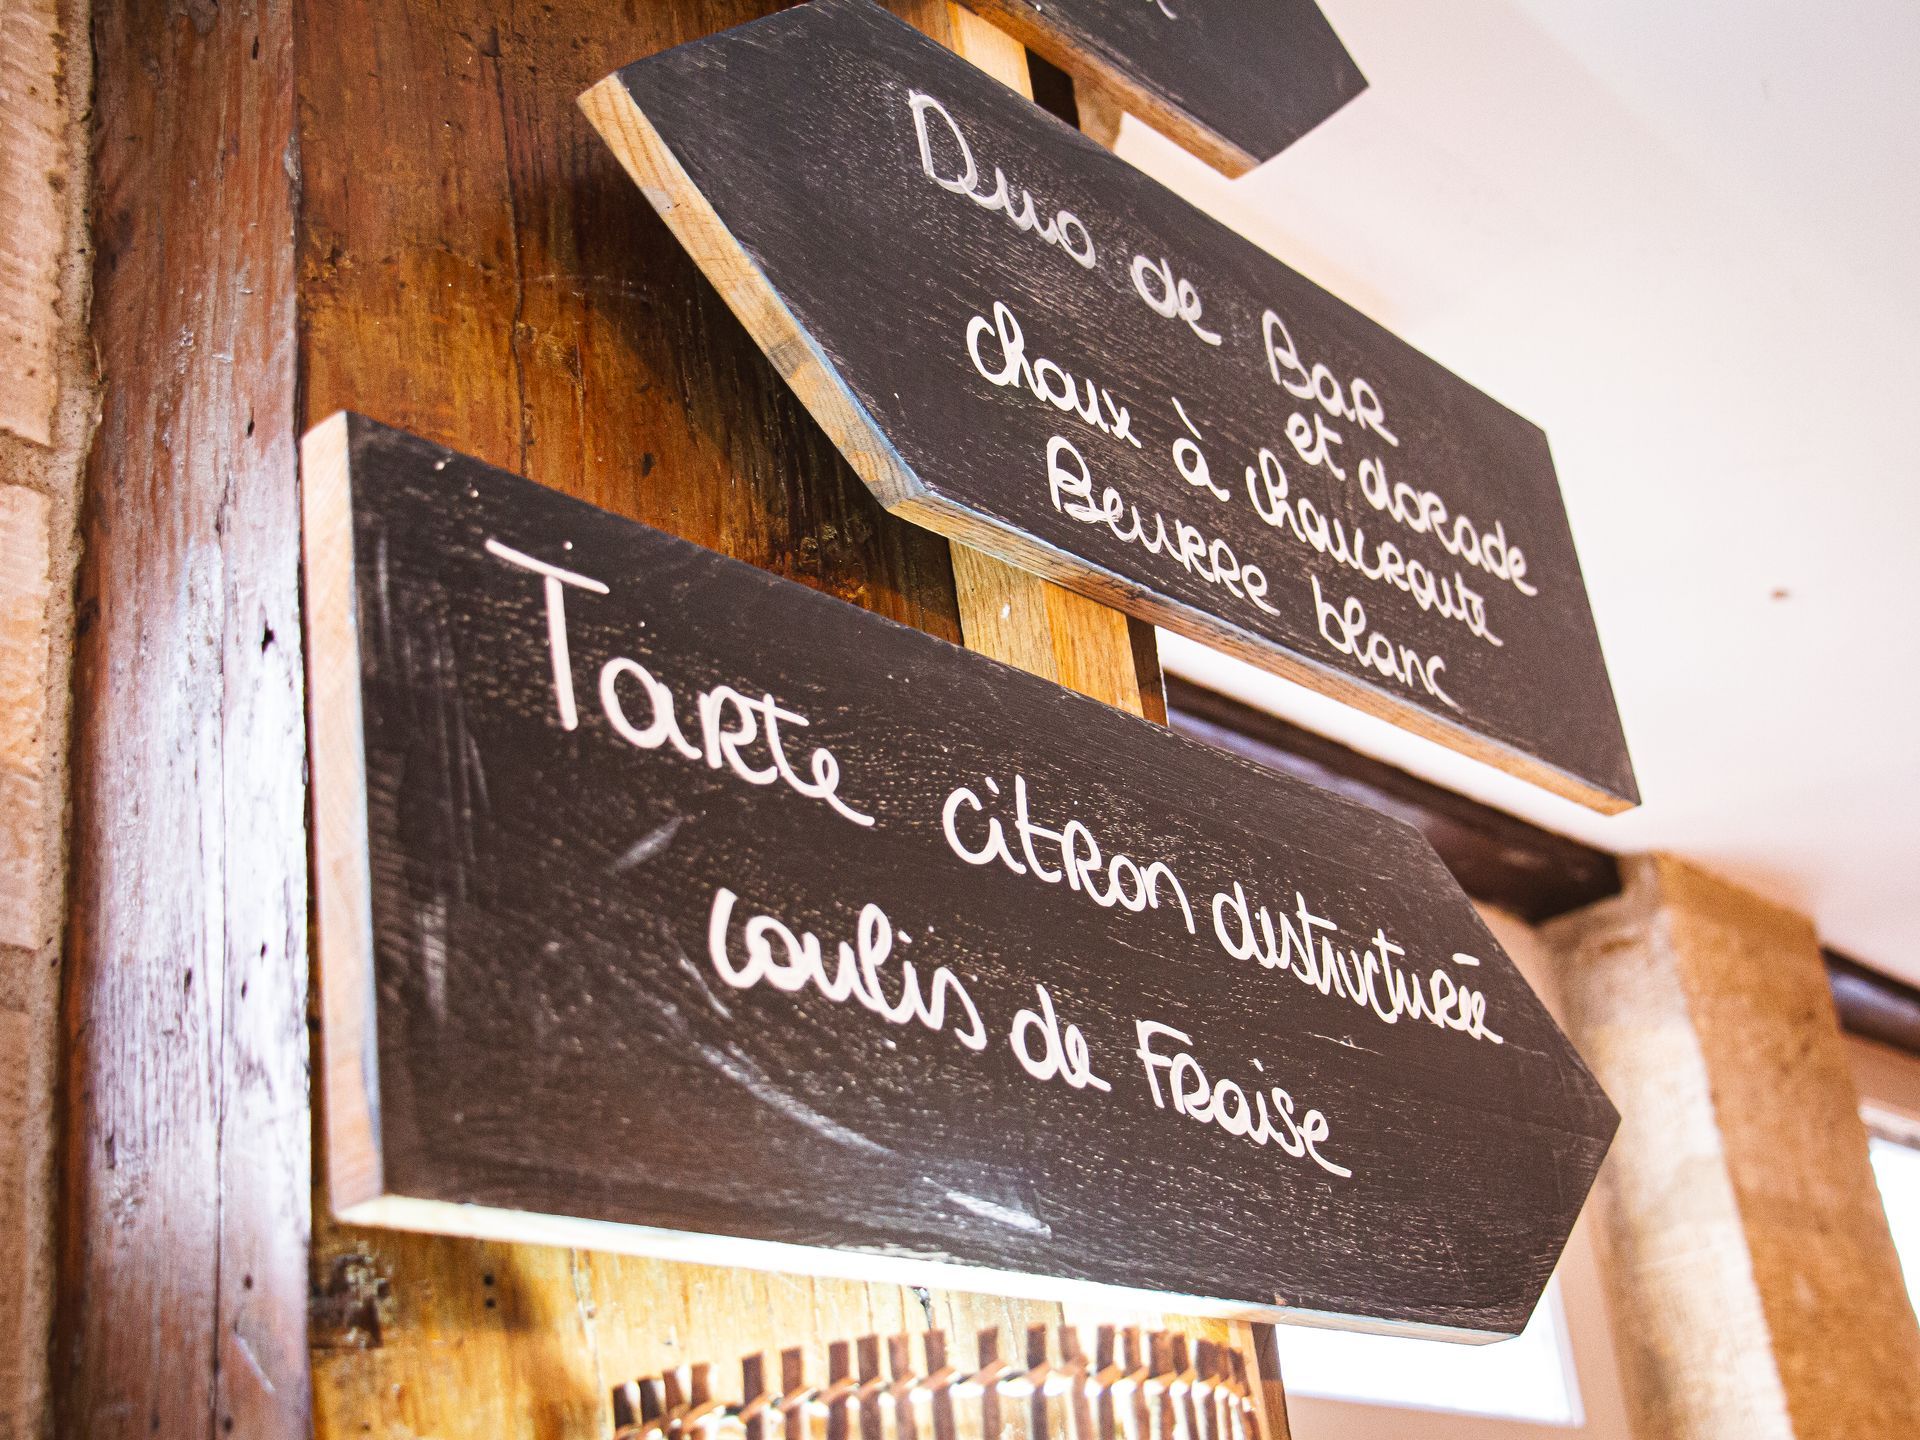 Duo de Bar
et dorade
choux à choucroute
Beurre blanc
Tarte citron destructurée
coulis de Fraise